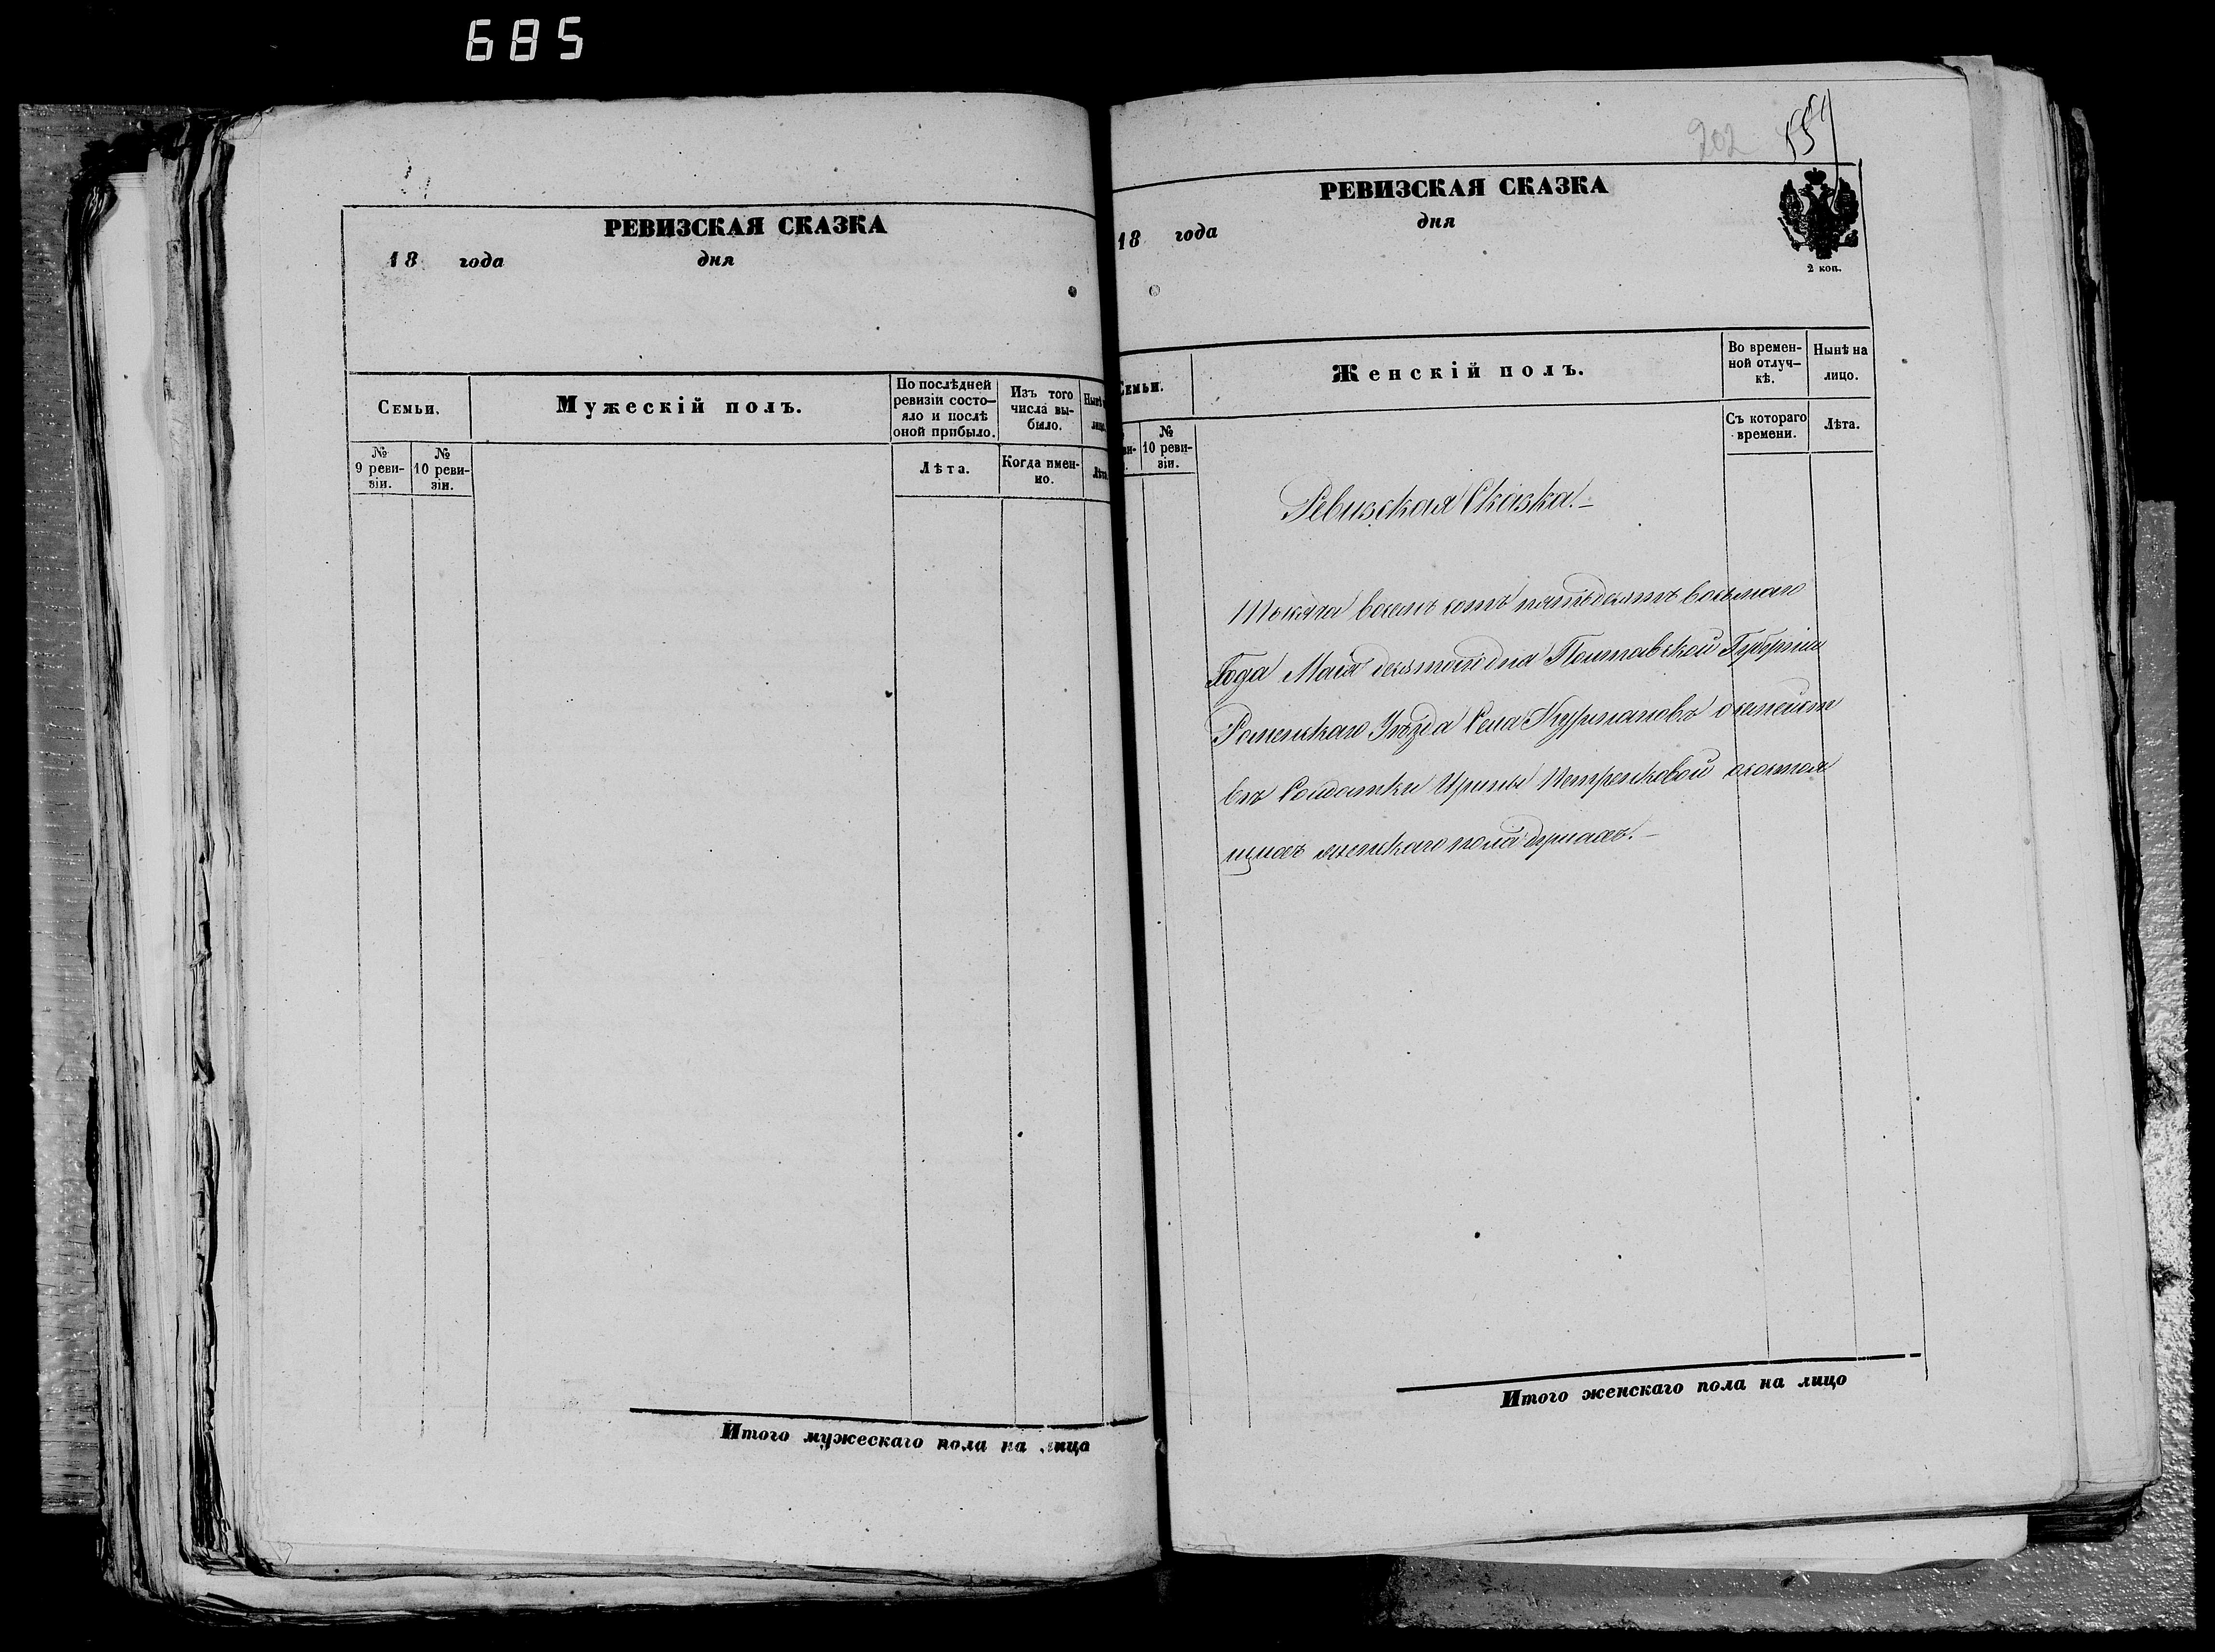 685
РЕВИЗСКАЯ СКАЗКА
18 года дня
Семьи.
Мужескій полъ.
По послѣдней ревизіи состо-
яло и послѣ оной прибыло.
Изъ того числа вы-
было.
№ 9 реви-
зіи.
№ 10 реви-
зіи.
Лѣта.
Когда имен-
но.
Лѣта
Итого мужескаго пола на лицо
202
РЕВИЗСКАЯ СКАЗКА
18 года дня
2 коп.
Семьи.
Женскій полъ.
Во времен-
ной отлуч-
кѣ.
Нынѣ на
лицо.
№ 10 реви-
зіи.
Съ котораго
времени.
Лѣта.
Ревизская Сказка.–
Тысяча восемъ сотъ пятьдесятъ восьмаго
Года Мая десятаго дня Полтавской Губерніи
Роменскаго Уѣзда Села
Солдатки Ирины Петренковой о состоя
щихъ женскаго пола душахъ.–
Итого женскаго пола на лицо